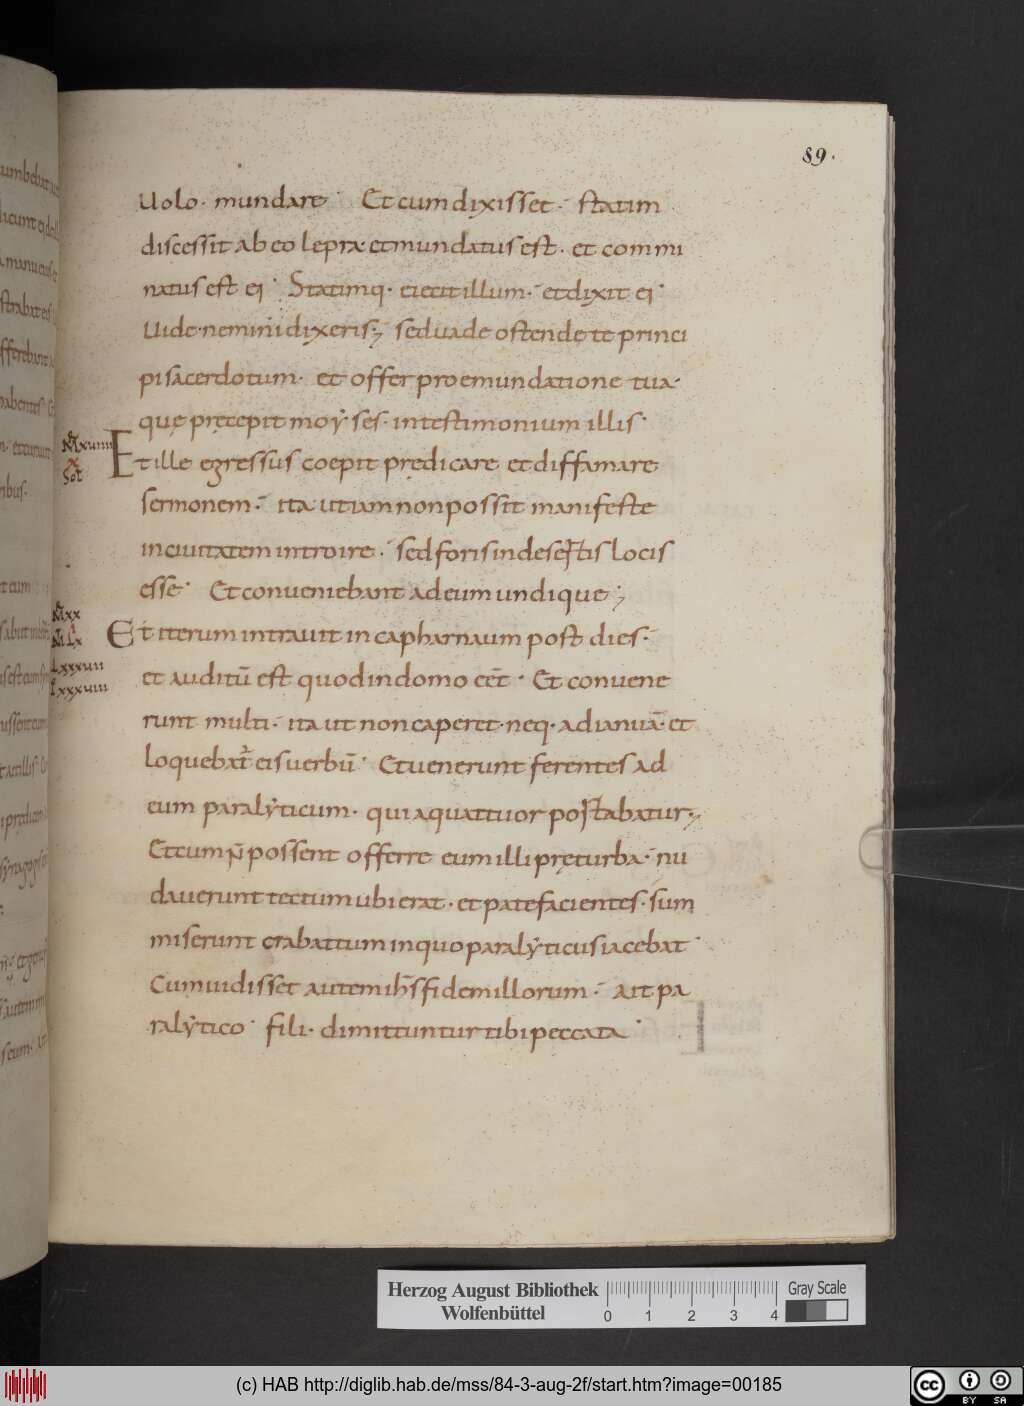 89.
Uolo. mundare Et cum dixisset. statim
discessit ab eo lepra et mundatus est. et commi
natus est ei Statimq. eiecit illum. et dixit ei
Uide nemini dixeris; sed uade ostende te princi
pi sacerdotum. et offer pro emundatione tua.
quę pręcepit moẏses. in testimonium illis
xuiiii
Et ille egressus coepit prędicare et diffamare
sermonem. ita ut iam non possit manifeste
in ciuitatem introire. sed foris in desertis locis
esse Et conueniebant ad eum undique;
xx
Et iterum intrauit in capharnaum post dies.
Lx
Lxxxuii
et auditū est quod in domo eēt. Et conuene
Lxxxuiii
runt multi. ita ut non caperet. neq. ad ianuā. et
loquebat̄ eis uerbū Et uenerunt ferentes ad
eum paralẏticum. qui a quattuor postabatur;
Et cum n̄ possent offerre eum illi prę turba. nu
dauerunt tectum ubi erat. et patefacientes. sum
miserunt crabattum in quo paralẏticus iacebat
Cum uidisset autem ih̄s fidem illorum. ait pa
ralẏtico fili. dimittuntur tibi peccata
Herzog August Bibliothek
Wolfenbüttel
0 1 2 3 4
Gray Scale
(c) HAB http://diglib.hab.de/mss/84-3-aug-2f/start.htm?image=00185
cc BY SA